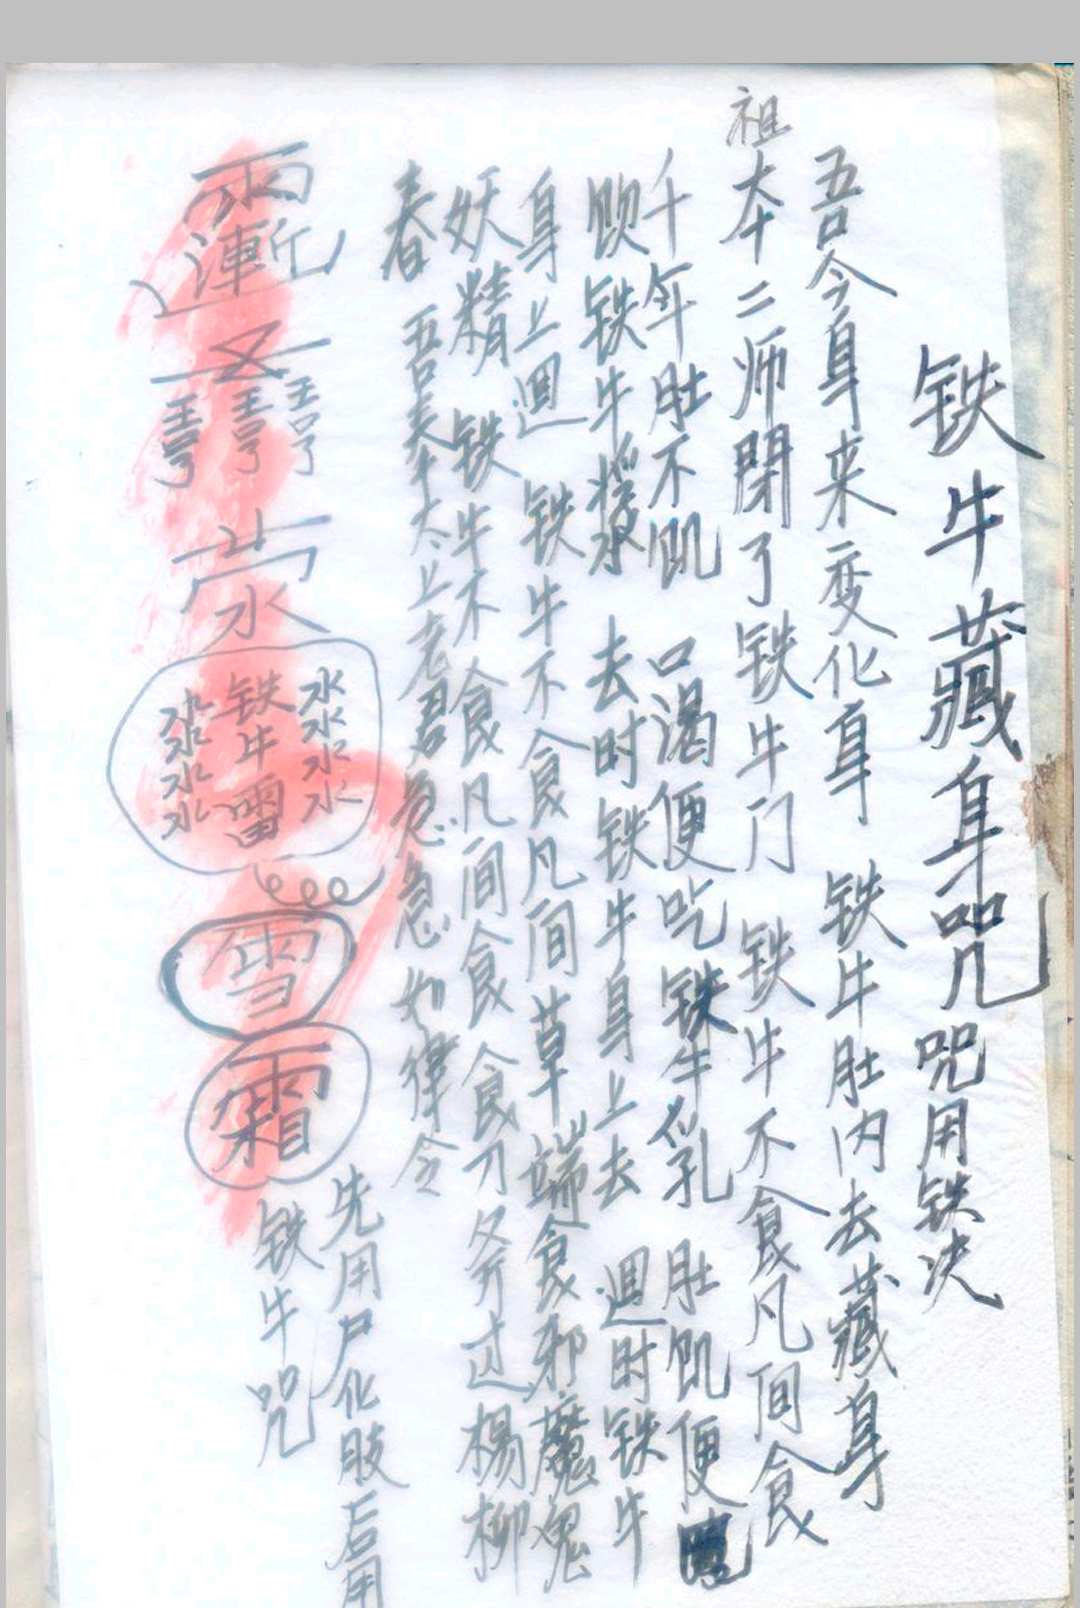 铁牛藏身咒 咒用铁决
吾今身来变化身 铁牛肚内去藏身
祖本二师閞了铁牛门 铁牛不食凡间食
千年肚不饥 口渴便吃铁牛乳 肚饥便
饮铁牛漿 去时铁牛身上去 迴时铁牛
身上迴 铁牛不食凡间草 端食邪魔鬼
妖精 铁牛不食凡间食 食刀斧过楊柳
春 吾奉太上老君急急如律令
先用尸化肢后用
铁牛咒
水水水水
铁牛雷
水水水水
雪
霜